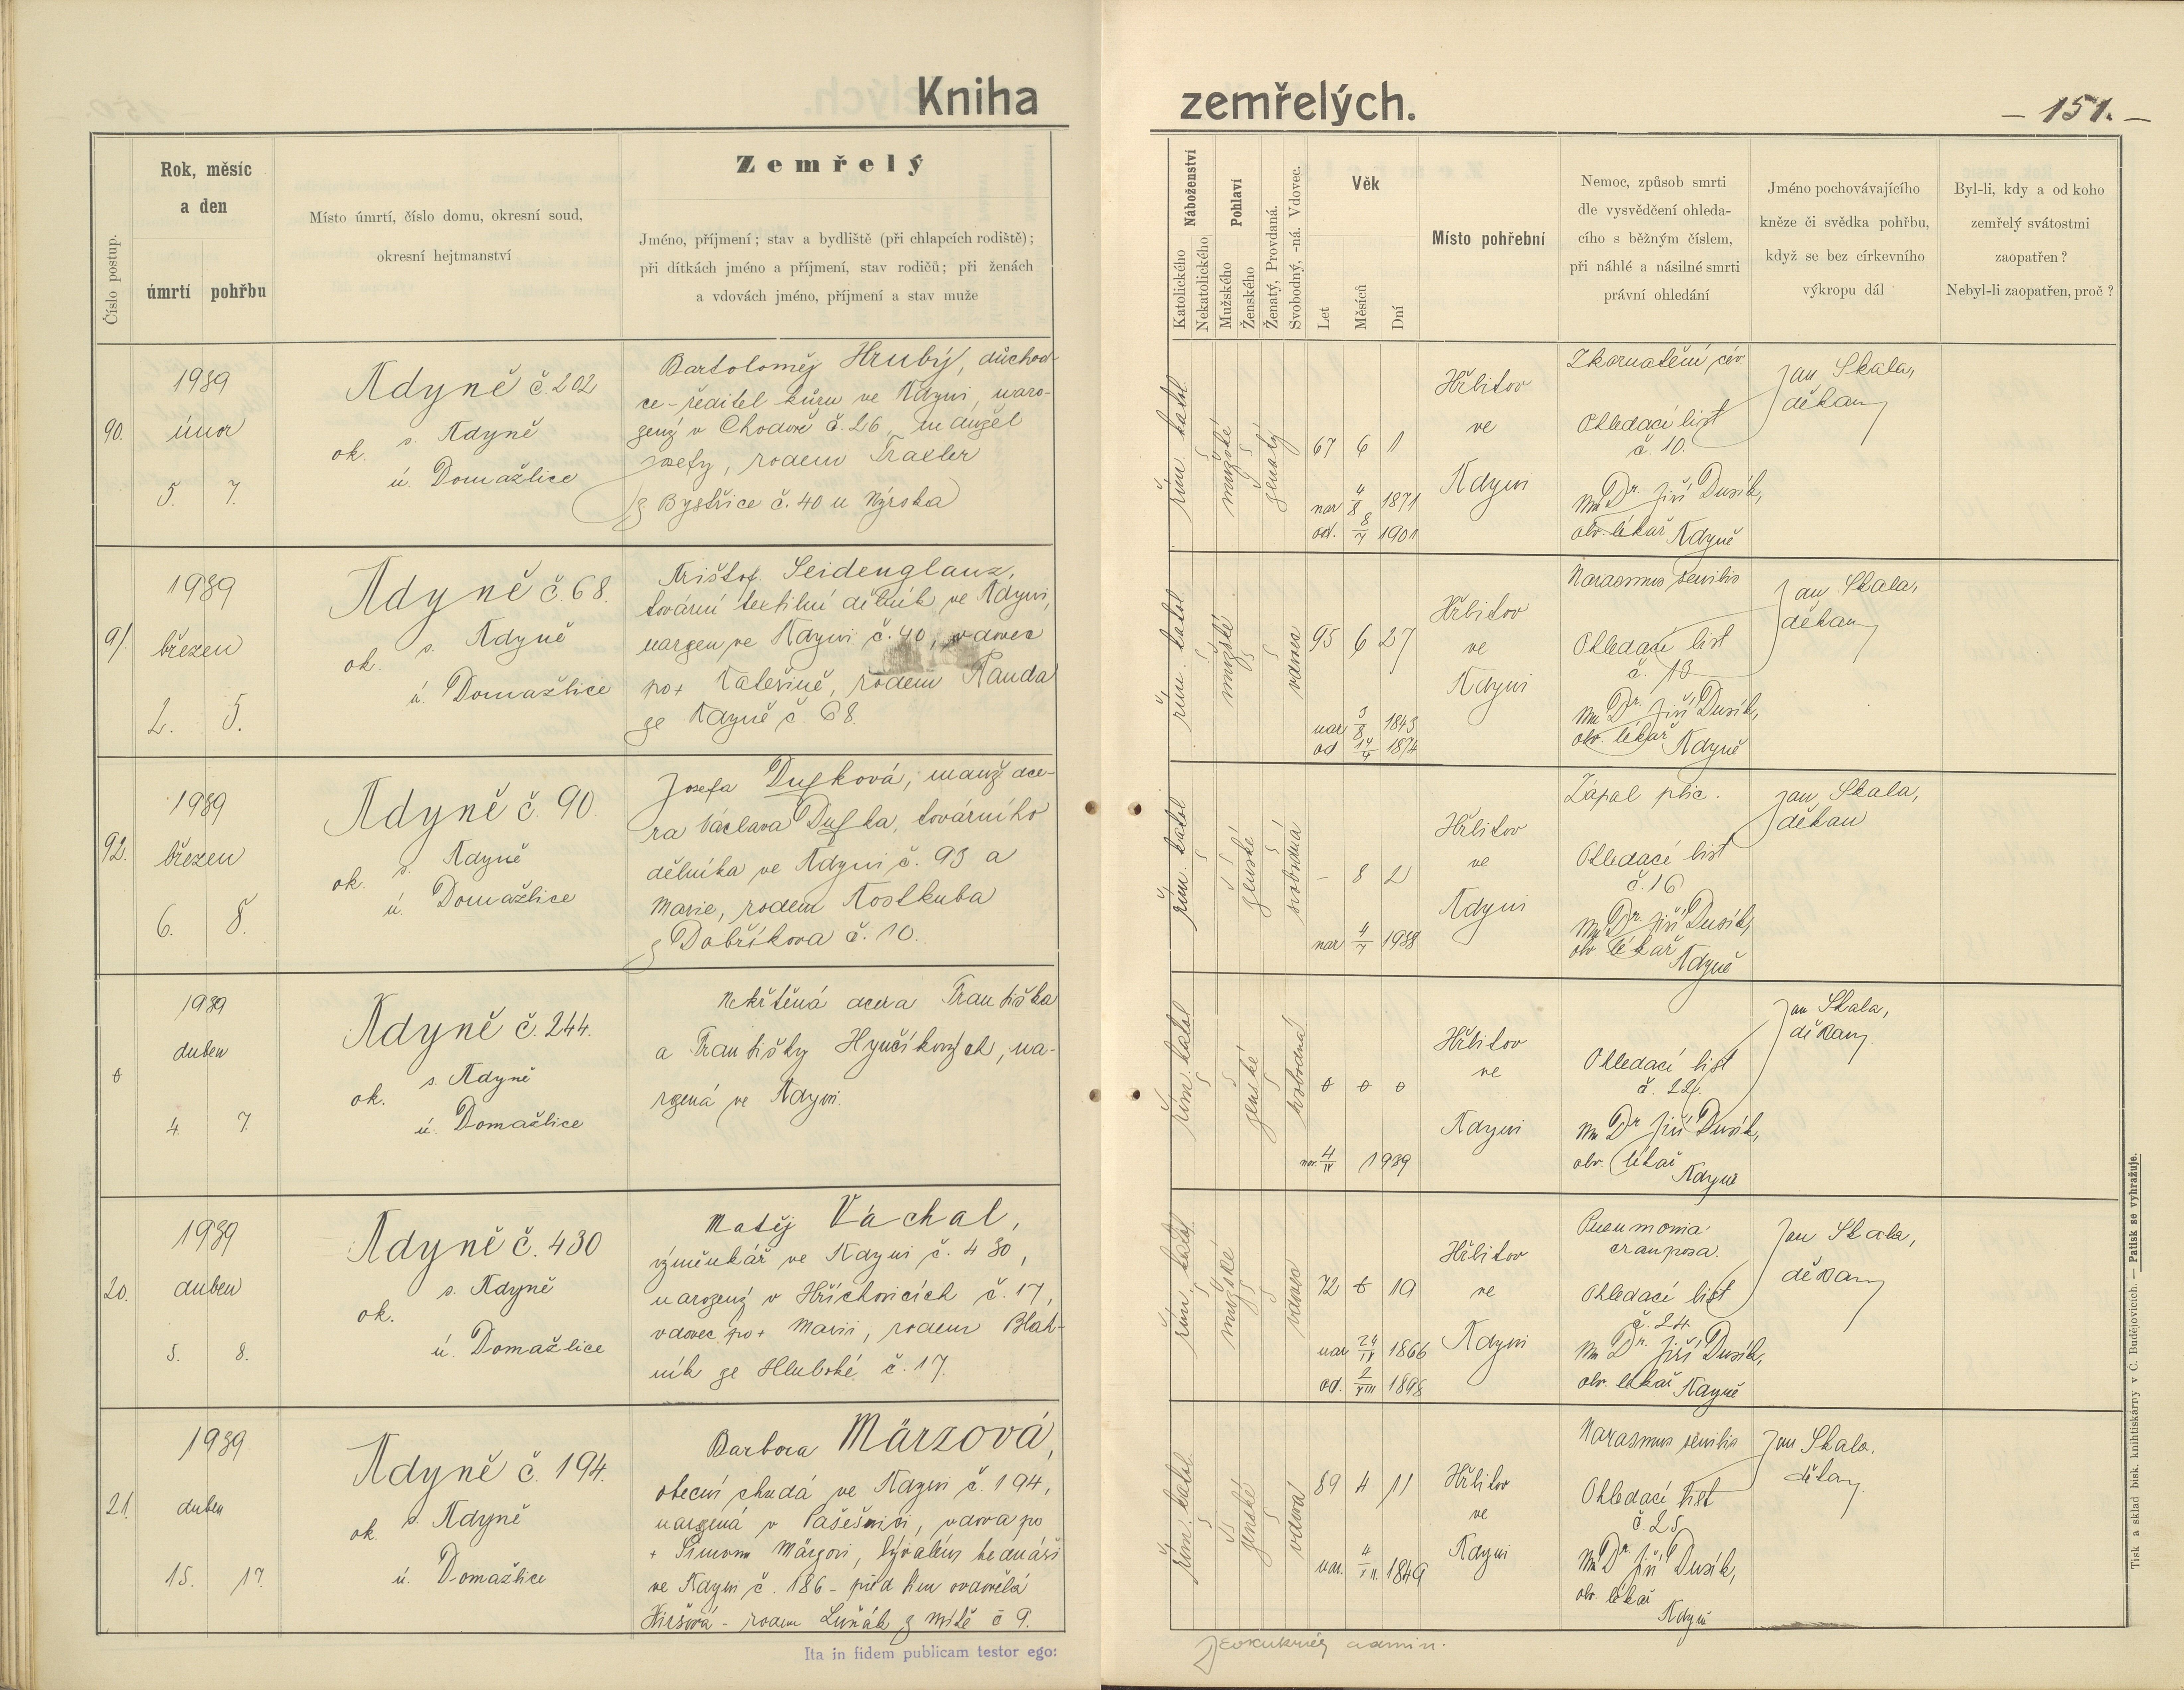 Kniha zemřelých.
– 151. –
Číslo postup.
Rok, měsíc
a den
úmrtí pohřbu
Místo úmrtí, číslo domu, okresní soud,
okresní hejtmanství
Zemřelý
Jméno, příjmení; stav a bydliště (při chlapcích rodiště);
při dítkách jméno a příjmení, stav rodičů; při ženách
a vdovách jméno, příjmení a stav muže
Náboženství
Katolického
Nekatolického
Pohlaví
Mužského
Ženského
Ženatý, Provdaná.
Svobodný, -ná. Vdovec.
Věk
Let
Měsíců
Dní
Místo pohřební
Nemoc, způsob smrti
dle vysvědčení ohleda-
cího s běžným číslem,
při náhlé a násilné smrti
právní ohledání
Jméno pochovávajícího
kněze či svědka pohřbu,
když se bez církevního
výkropu dál
Byl-li, kdy a od koho
zemřelý svátostmi
zaopatřen?
Nebyl-li zaopatřen, proč?
90.
1939
únor
5. 7.
Kdyně č. 202
ok. s. Kdyně
ú. Domažlice
Bartoloměj Hrubý, důchod-
ce - ředitel kůru ve Kdyni, naro-
zený v Chodově č. 26, manžel
Josefy, rodem Traxler
z Bystřice č. 40 u Nýrska
řím. katol.
mužské
ženatý
67 6 1
nar 4/8 1871
od. 8/7 1901
Hřbitov
ve
Kdyni
Zkornatění cév
Ohledací list
č. 10.
MUDr. Jiří Dusík,
obv. lékař Kdyně
Jan Skala,
děkan
91.
1939
březen
2. 5.
Kdyně č. 68.
ok. s. Kdyně
ú. Domažlice
Krištof Seidenglanz,
tovární textilní dělník ve Kdyni,
narozen ve Kdyni č. 40, vdovec
po + Kateřině, rodem Kanda
ze Kdyně č. 68.
řím. katol.
mužské
vdovec
95 6 27
nar 3/8 1843
od 14/4 1874
Hřbitov
ve
Kdyni
Marasmus senilis
Ohledací list
č. 13
MUDr. Jiří Dusík,
obv. lékař Kdyně
Jan Skala,
děkan
92.
1939
březen
6. 8.
Kdyně č. 90.
ok. s. Kdyně
ú. Domažlice
Josefa Dufková, manž. dce-
ra Václava Dufka, továrního
dělníka ve Kdyni č. 93 a
Marie, rodem Kostkuba
z Dobříkova č. 10.
řím. katol
ženské
svobodná
– 8 2
nar 4/7 1938
Hřbitov
ve
Kdyni
Zápal plic.
Ohledací list
č. 16
MUDr. Jiří Dusík,
obv. lékař Kdyně
Jan Skala,
děkan
0
1939
duben
4. 7.
Kdyně č. 244.
ok. s. Kdyně
ú. Domažlice
Nekřtěná dcera Františka
a Františky Hynčíkových, na-
rozená ve Kdyni.
řím. katol
ženské
svobodná
0 0 0
nar. 4/IV 1939
Hřbitov
ve
Kdyni
Ohledací list
č. 22.
MUDr Jiří Dusík,
obv. lékař
Kdyně
Jan Skala,
děkan
20.
1939
duben
5. 8.
Kdyně č. 430
ok. s. Kdyně
ú. Domažlice
Matěj Váchal,
výměnkář ve Kdyni č. 430,
narozený v Hříchovicích č. 17,
vdovec po + Marii, rodem Bláh-
ník ze Hluboké č. 17.
řím. katol
mužské
vdovec
72 0 19
nar 24/IV 1866
od. 2/VIII 1898
Hřbitov
ve
Kdyni
Pneumonia
crouposa.
Ohledací list
č. 24
MUDr. Jiří Dusík,
obv. lékař Kdyně
Jan Skala,
děkan
21.
1939
duben
15. 17.
Kdyně č. 194.
ok. s. Kdyně
ú. Domažlice
Barbora Märzová,
obecní chudá ve Kdyni č. 194,
narozená v Pašešnici, vdova po
+ Šimonu Märzovi, bývalém bednáři
ve Kdyni č. 186 - před tím ovdovělá
rodem Luňák z č 9.
řím. katol.
ženské
vdova
89 4 11
nar. 4/XII 1849
Hřbitov
ve
Kdyni
Marasmus senilis
Ohledací list
č. 25
MUDr Jiří Dusík,
obv. lékař
Kdyně
Jan Skala.
děkan
Ita in fidem publicam testor ego:
admin.
Tisk a sklad bisk. knihtiskárny v Č. Budějovicích. — Patisk se vyhražuje.